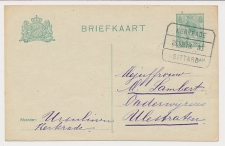 BRIEFKAART
KERKRADE
SITTARD
Mejuffrouw
M. Lambert
Onderwijzeres
Ulestraten
Afzender: Ursulinen
Kerkrade